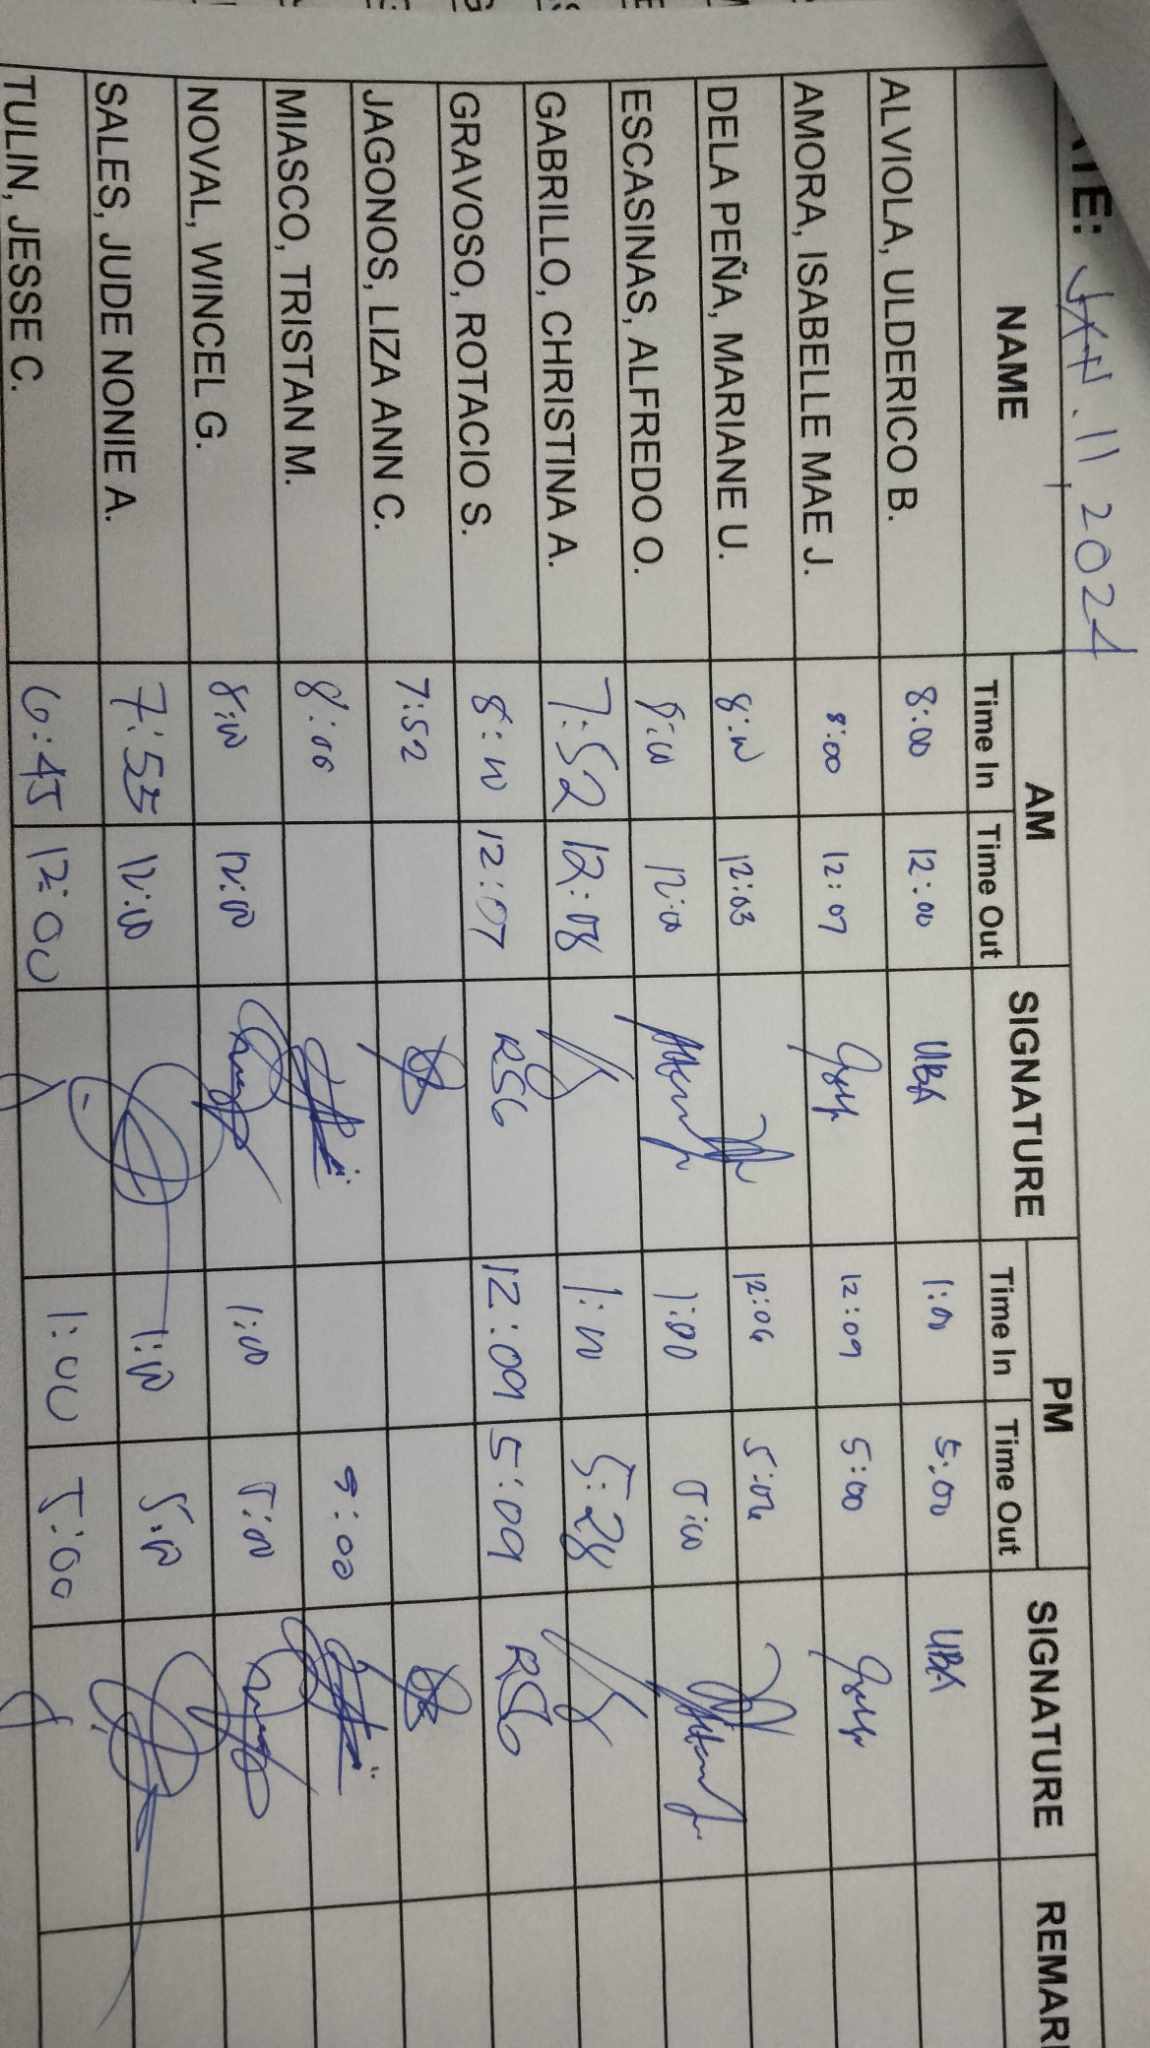 ATE: JAN. 11, 2024
NAME AM SIGNATURE PM SIGNATURE REMAR
Time In Time Out Time In Time Out
ALVIOLA, ULDERICO B. 8:00 12:00 UBA 1:00 5:00 UBA
AMORA, ISABELLE MAE J. 8:00 12:07 12:09 5:00
DELA PEÑA, MARIANE U. 8:00 12:03 12:04 5:04
ESCASINAS, ALFREDO O. 8:00 12:00 1:00 5:00
GABRILLO, CHRISTINA A. 7:52 12:08 1:00 5:28
GRAVOSO, ROTACIO S. 8:00 12:07 RSG 12:09 5:09 RSG
JAGONOS, LIZA ANN C. 7:52
MIASCO, TRISTAN M. 8:00
NOVAL, WINCEL G. 8:00 12:00 1:00 5:00
SALES, JUDE NONIE A. 12:00 1:00 5:00
TULIN, JESSE C. 6:45 12:00 1:00 5:00